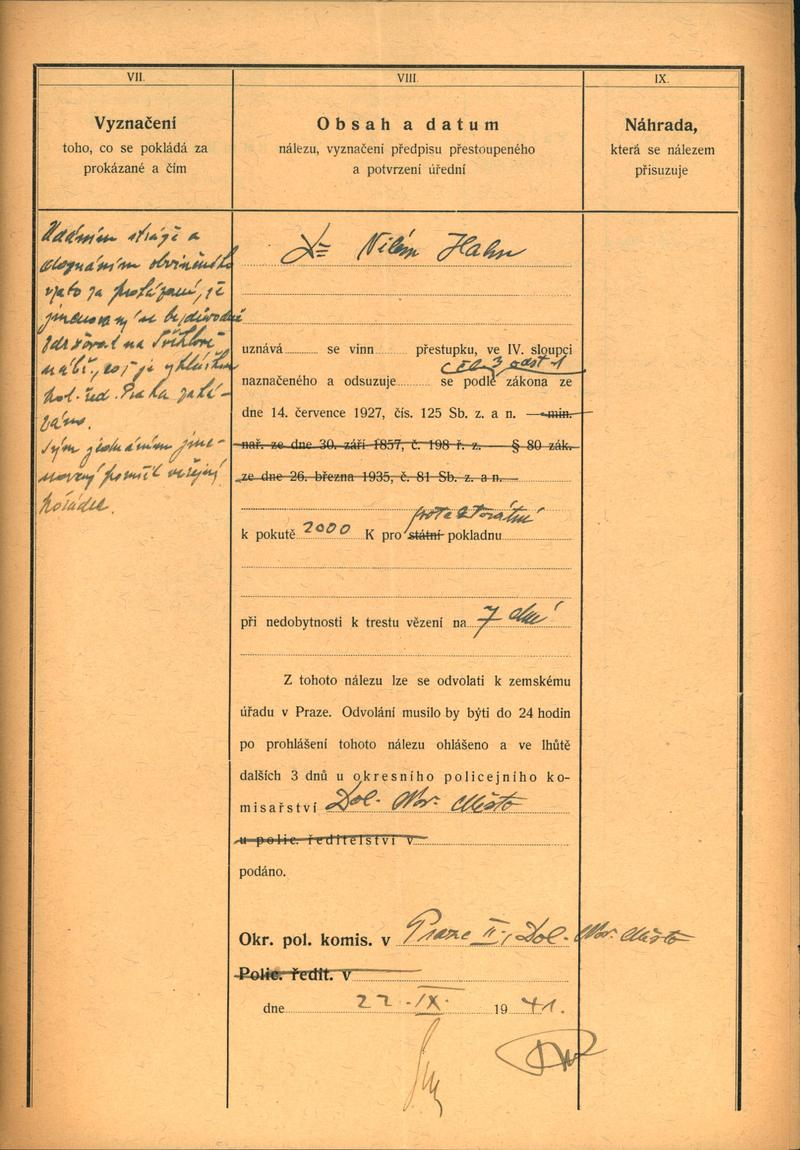 VII.
Vyznačení
toho, co se pokládá za
prokázané a čím
VIII.
Obsah a datum
nálezu, vyznačení předpisu přestoupeného
a potvrzení úřední
IX.
Náhrada,
která se nálezem
přisuzuje
Udáním stráže a
doznáním obviněného
vzato za prokázané, že
jmenovaný se bezdůvodně
zdržoval na
nábř., což je vyhláškou
pol. řed. Praha zaká-
záno.
Tým jednáním jme-
novaný porušil veřejný
pořádek.
Dr Vilém Hahn
uznává se vinn přestupku, ve IV. sloupci
čl. 3 odst 1
naznačeného a odsuzuje se podle zákona ze
dne 14. července 1927, čís. 125 Sb. z. a n. — min.
nař. ze dne 30. září 1857, č. 198 ř. z. — § 80 zák.
ze dne 26. března 1935, č. 81 Sb. z. a n. —
protektorátní
k pokutě 2000 K pro státní pokladnu
při nedobytnosti k trestu vězení na 7 dní
Z tohoto nálezu lze se odvolati k zemskému
úřadu v Praze. Odvolání musilo by býti do 24 hodin
po prohlášení tohoto nálezu ohlášeno a ve lhůtě
dalších 3 dnů u okresního policejního ko-
misařství Dol. Nov. Město
u polic. ředitelství v
podáno.
Okr. pol. komis. v Praze II., Dol. Nov. Město
Polic. ředit. v
dne 22. IX. 1941.